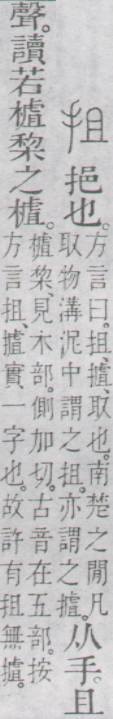 抯 挹也。
方言曰。抯、摣、取也。南楚之閒凡
取物溝泥中謂之抯。亦謂之摣。
从手。且
聲。讀若樝棃之樝。
樝棃、見木部。側加切。古音在五部。按
方言抯、摣實一字也。故許有抯無摣。